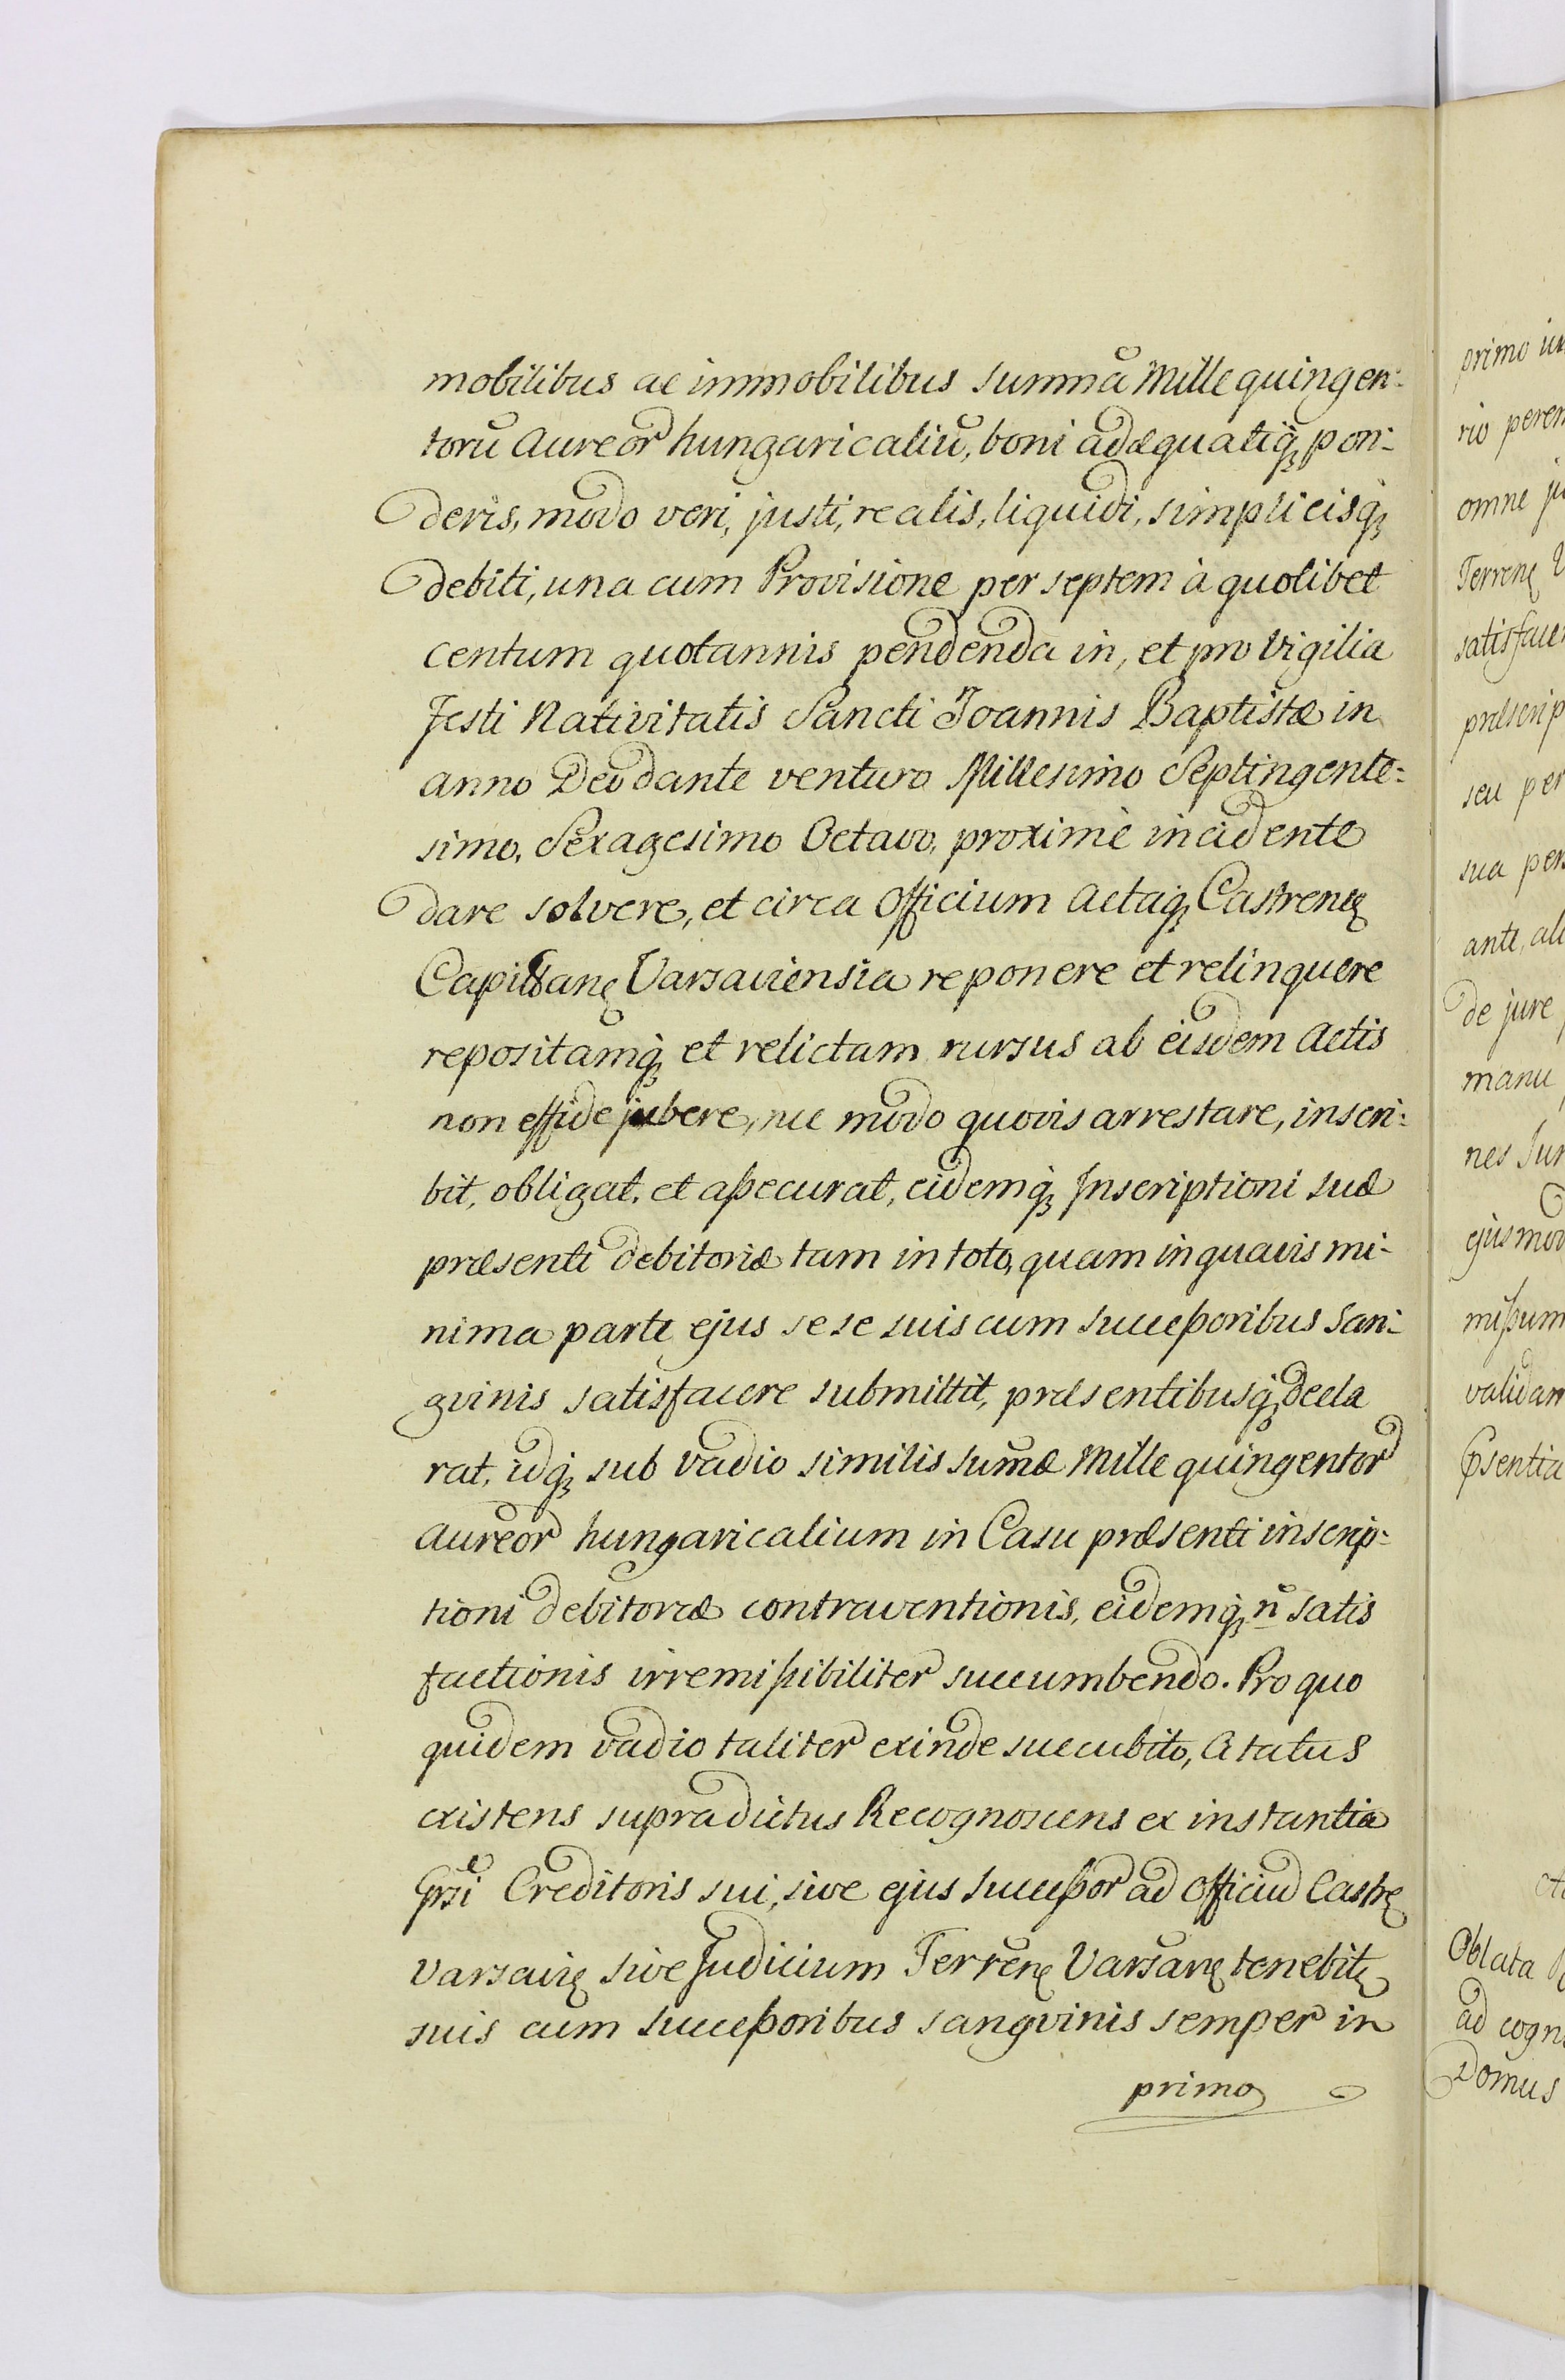 mobilibus ac immobilibus summã Mille quingen:
torũ Aureor hungaricaliũ, boni adæquatiq́ꝫ pon:
deris, modo veri, justi, realis, liquidi, simplicisq́ꝫ
debiti, una cum Provisione per septem à quolibet
centum quotannis pendenda in, et pro Vigilia
Festi Nativitatis Sancti Joannis Baptistæ in
anno Deo dante venturo Millesimo Septingente:
simo, Sexagesimo Octavo, proximè incidente
dare solvere, et circa Officium Actaq́ꝫ Castrenę
Capitanę Varsaviensia reponere et relinquere
repositamq́ꝫ et relictam rursus ab eisdem Actis
non effide jubere, nec modo quovis arrestare, inscri:
bit, obligat, et aßecurat, eidemq́ꝫ Inscriptioni suæ
præsenti debitoriæ tam in toto, quam in quavis mi:
nima parte ejus sese suis cum Succeßoribus San:
gvinis satisfacere submittit, præsentibusq́ꝫ decla
rat, idq́ꝫ sub vadio similis sum̃æ Mille quingentor
Aureor hungaricalium in Casu præsenti inscrip:
tioni debitoriæ contraventionis, eidemq́ꝫ ñ satis
factionis irremißibiliter succumbendo. Pro quo
quidem vadio taliter exinde succubito, Citatus
existens supradictus Recognoscens ex instantia
pñsi Creditoris sui, sive ejus Succeßor ad Officiũ Castrę
Varsavię sive Judicium Terrenę Varsavę tenebitꝫ
suis cum Succeßoribus sangvinis semper in
primo
primo in
rio perem
omne ju
Terrenę V
satisfacer
præscrip
seu per
sua per
ante, ali
de jure
manu
nes Jur
ejusmod
mißum
validam
psentia
Oblata
ad cogn
Domus